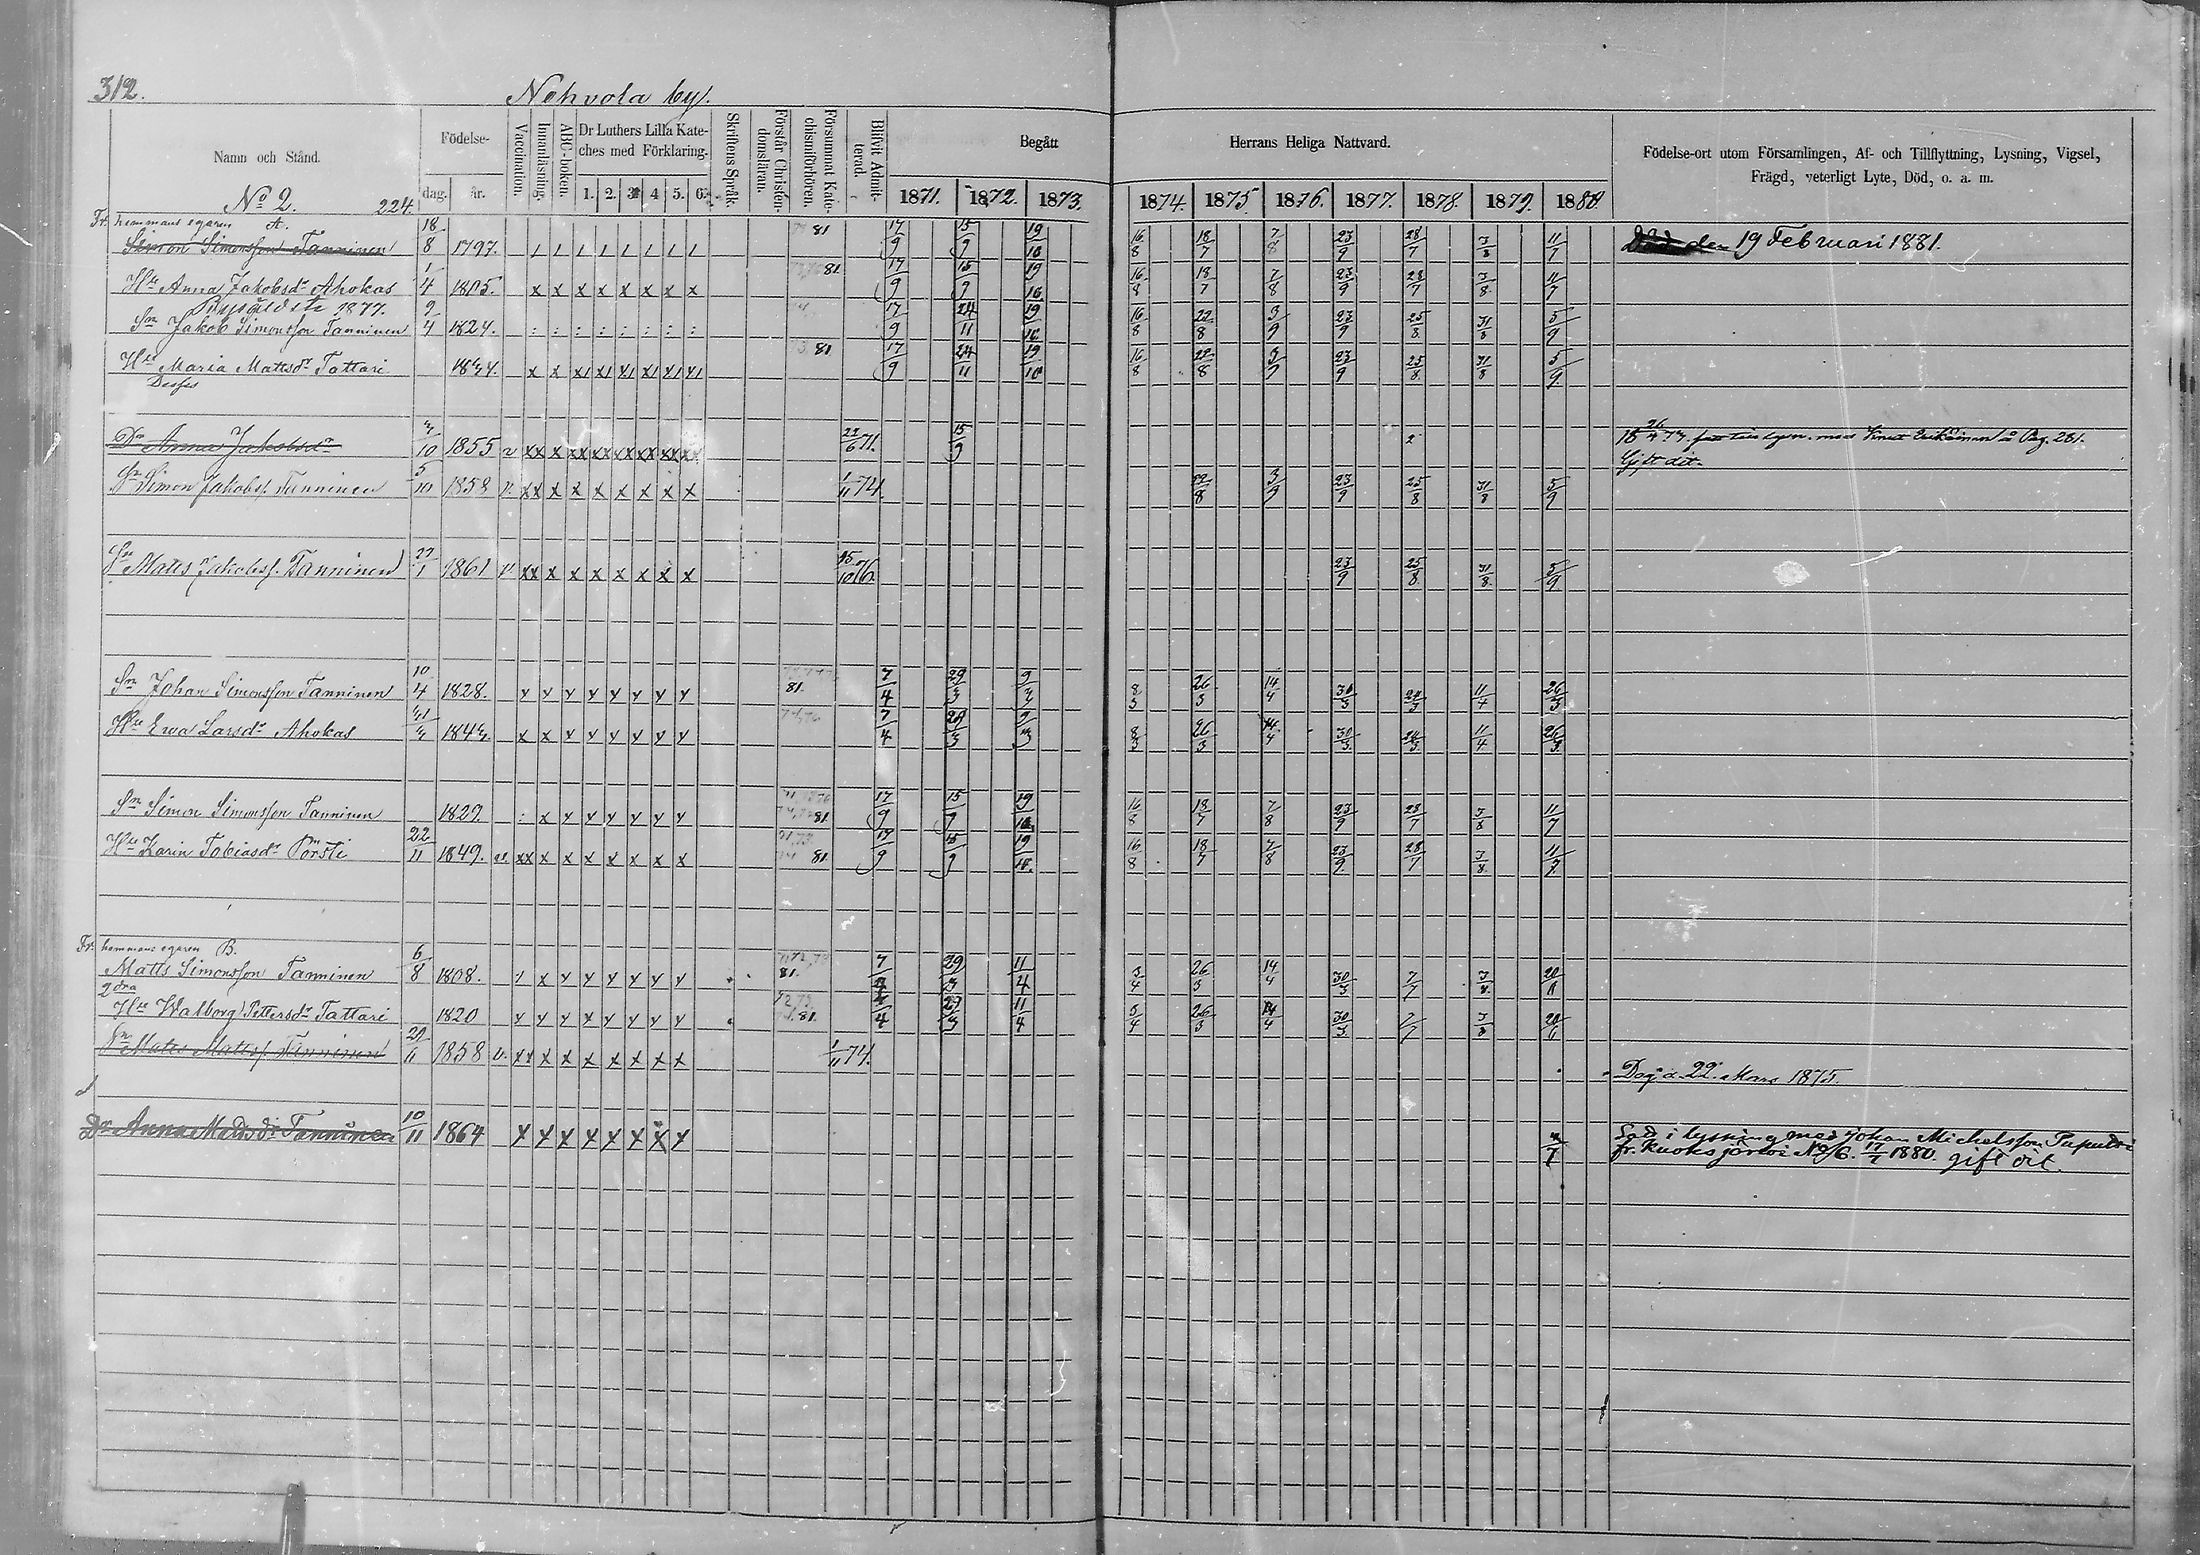 312.
Nehvola by.
Namn och Stånd.
Födelse-
dag.
år.
Vaccination.
Innanläsning.
ABC-boken.
Dr Luthers Lilla Kate-
ches med Förklaring.
1. 2. 3. 4. 5. 6.
Skriftens Språk.
Förstår Christen-
domsläran.
Försummat Kate-
chismiförhören.
Blifvit Admit-
terad.
Begått
Herrans Heliga Nattvard.
1871. 1872. 1873. 1874. 1875. 1876. 1877. 1878. 1879. 1880
Födelse-ort utom Församlingen, Af- och Tillflyttning, Lysning, Vigsel,
Frägd, veterligt Lyte, Död, o. a. m.
No 2. 224.
Fr. hemmans egaren A.
Simon Simonsson Tanninen 18/8 1797. 81 17/9 15/9 19/10 16/8 18/7 7/8 23/9 28/7 3/8 11/7 den 19 Februari 1881.
Hu Anna Jakobsdr Ahokas 1/4 1805. x x x x x x x x 81 17/9 15/9 19/10 16/8 18/7 7/8 23/9 28/7 3/8 11/7
1877.
Sn Jakob Simonsson Tanninen 9/4 1824. 17/9 24/11 19/10 16/8 22/8 3/9 23/9 25/8 31/8 5/9
Hu Maria Mattsdr Tattari 81 17/9 24/11 19/10 16/8 22/8 3/9 23/9 25/8 31/8 5/9
Desses
Dr Anna Jakobsdr 1855 v 22/6 71. 15/9 å Pag. 281.
Gift dit.
Sn Simon Jakobs. Tanninen 5/10 1858 v. xx x x x x x x x 1/11 74. 22/8 3/9 23/9 25/8 31/8 5/9
Sn Matts Jakobss. Tanninen 27/1 1861 v xx x x x x x x x 15/10 76. 23/9 25/8 31/8 5/9
Sn Johan Simonsson Tanninen 10/4 1828. 81. 7/4 29/3 9/3 8/3 26/3 14/4 30/3 24/3 11/4 26/3
Hu Ewa Larsdr Ahokas 7/4 29/3 9/3 8/3 26/3 14/4 30/3 24/3 11/4 26/3
Sn Simon Simonsson Tanninen 1829. 81 17/9 15/9 19/10 16/8 18/7 7/8 23/9 28/7 3/8 11/7
Hu Karin Tobiasdr Pörsti 22/11 1849. xx x x x x x x x 81. 17/9 15/9 19/10. 16/8 18/7 7/8 23/9 28/7 3/8 11/7
Fr. hemmans egaren B.
Matts Simonsson Tanninen 6/8 1808. 81. 29/3 11/4 26/3 14/4 30/3 7/7 3/8
2dra
Hu Walborg Pettersdr Tattari 1820 81. 29/3 11/4 5/4 26/3 14/4 30/3 7/7 3/8 20/6
Sn Matts Mattss. Tanninen 1858 v. xx x x x x x x x 1/11 74. Dog d. 22. Mars 1875.
Dr Anna Mattsdr Tanninen 10/11 1864 i lysning med Johan Michelsson
fr. Kuoksjärvi No 6. 1880. gift dit.